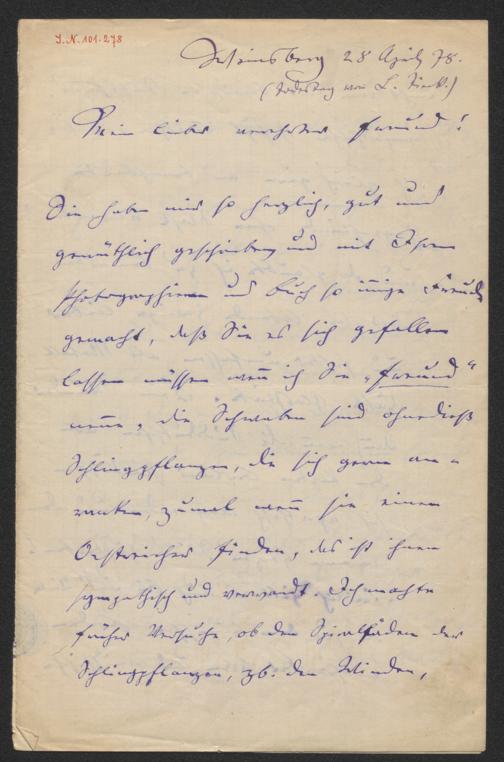 J.N. 101.278
Weinsberg 28 April 78.
(Todestag von L. Tieck.)
Mein lieber verehrter Freund!
Sie haben mir so herzlich, gut und
gemüthlich geschrieben und mit Ihren
Photographieen und Buch so innige Freude
gemacht, daß Sie es sich gefallen
lassen müssen wen̄ ich Sie „Freund“
nen̄e, die Schwaben sind ohnedieß
Schlingpflanzen, die sich gerne an-
ranken, zumal wen̄ sie einen
Oestreicher finden, das ist ihnen
sympathisch und verwandt. Ich machte
früher Versuche, ob den Spiralfäden der
Schlingpflanzen, zb. den Winden,